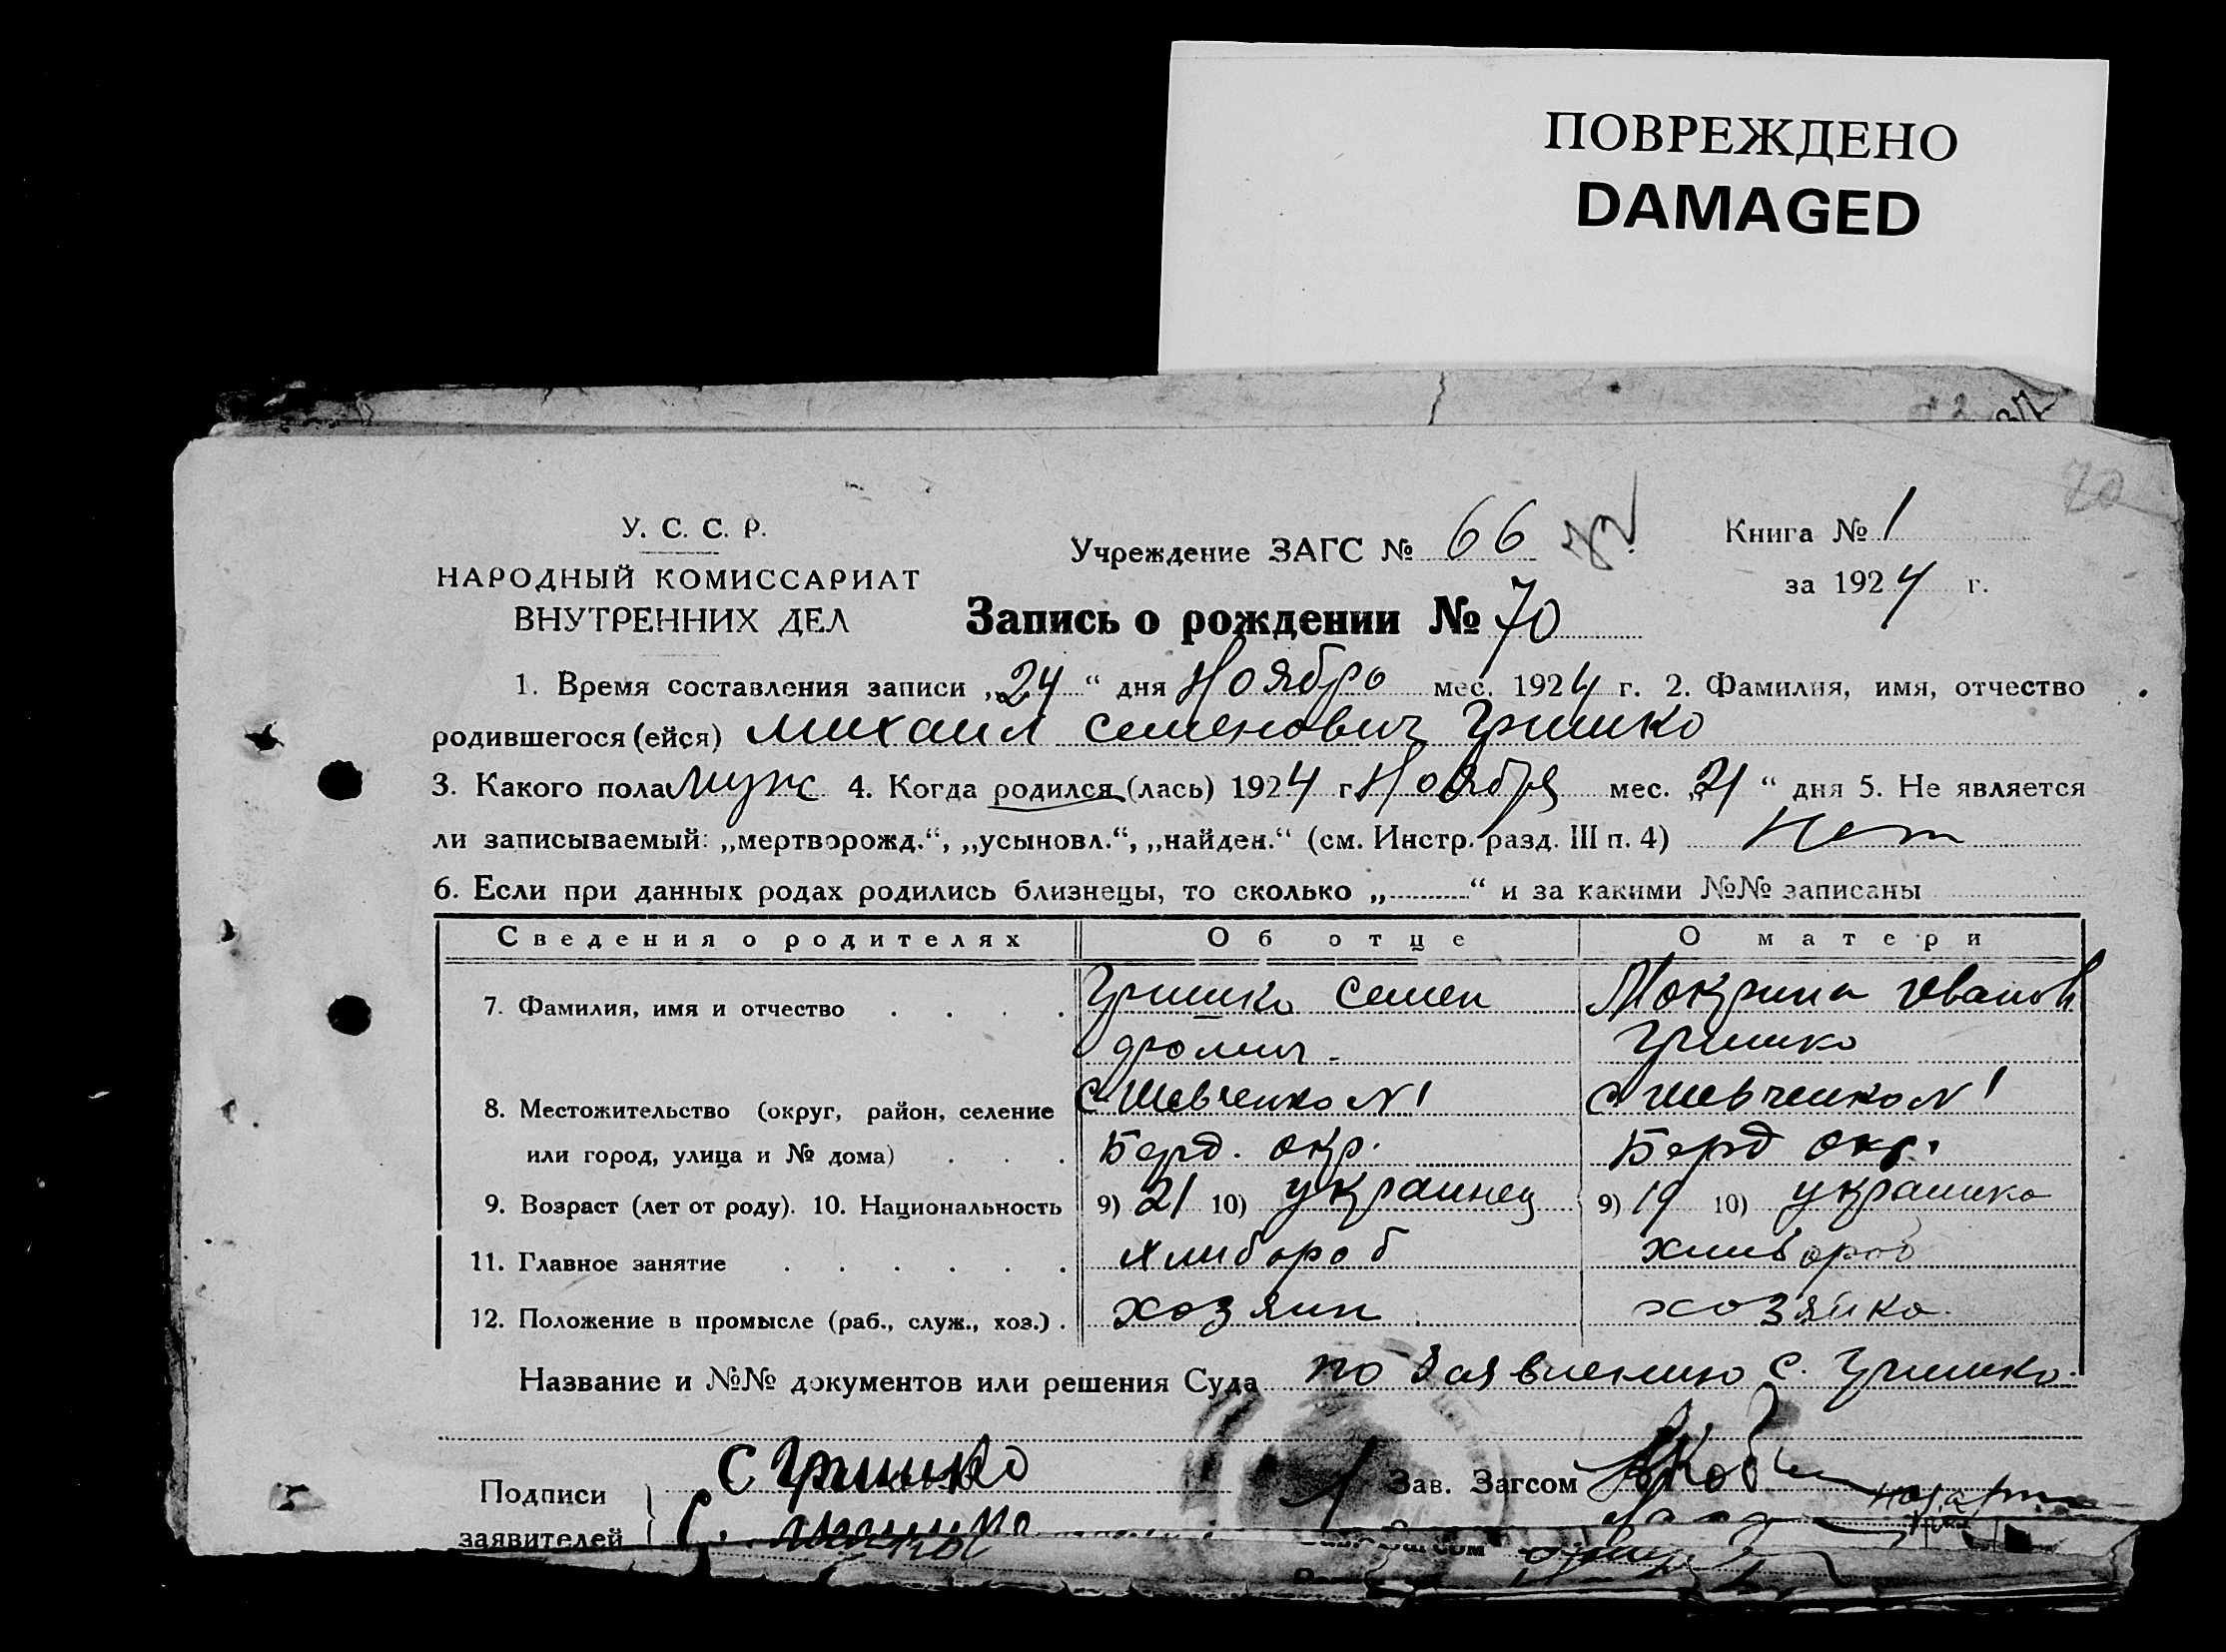 ПОВРЕЖДЕНО
DAMAGED
У. С. С. Р.
НАРОДНЫЙ КОМИССАРИАТ
ВНУТРЕННИХ ДЕЛ
Учреждение ЗАГС № 66
Книга № 1
за 1924 г.
70
Запись о рождении № 70
1. Время составления записи „24“ дня Ноябрь мес. 1924 г. 2. Фамилия, имя, отчество
родившегося (ейся) Михаил Семенович Гришко
3. Какого пола муж 4. Когда родился (лась) 1924 г. Ноября мес. „21“ дня 5. Не является
ли записываемый: „мертворожд.“, „усыновл.“, „найден.“ (см. Инстр. разд. III п. 4) Нет
6. Если при данных родах родились близнецы, то сколько „..........“ и за какими №№ записаны
Сведения о родителях Об отце О матери
7. Фамилия, имя и отчество . . . . Гришко Семен Мокрина Иванов
Гришко
8. Местожительство (округ, район, селение с Шевченко N 1 с Шевченко N 1
или город, улица и № дома) . . . Берд. окр. Берд окр.
9. Возраст (лет от роду). 10. Национальность 9) 21 10) украинец 9) 19 10) украинка
11. Главное занятие . . . . . . хлибороб хлибороб
12. Положение в промысле (раб., служ., хоз.) . хозяин хозяйка
Название и №№ документов или решения Суда по заявлению С. Гришко.
Подписи
заявителей
С Гришко
Зав. Загсом